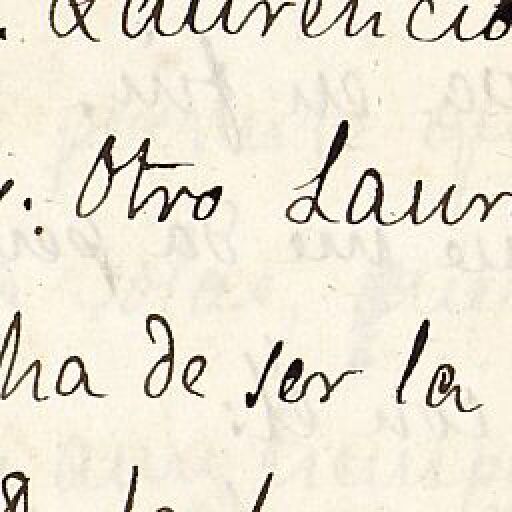 . Laurencio
. Otro Laur
ha de ser la